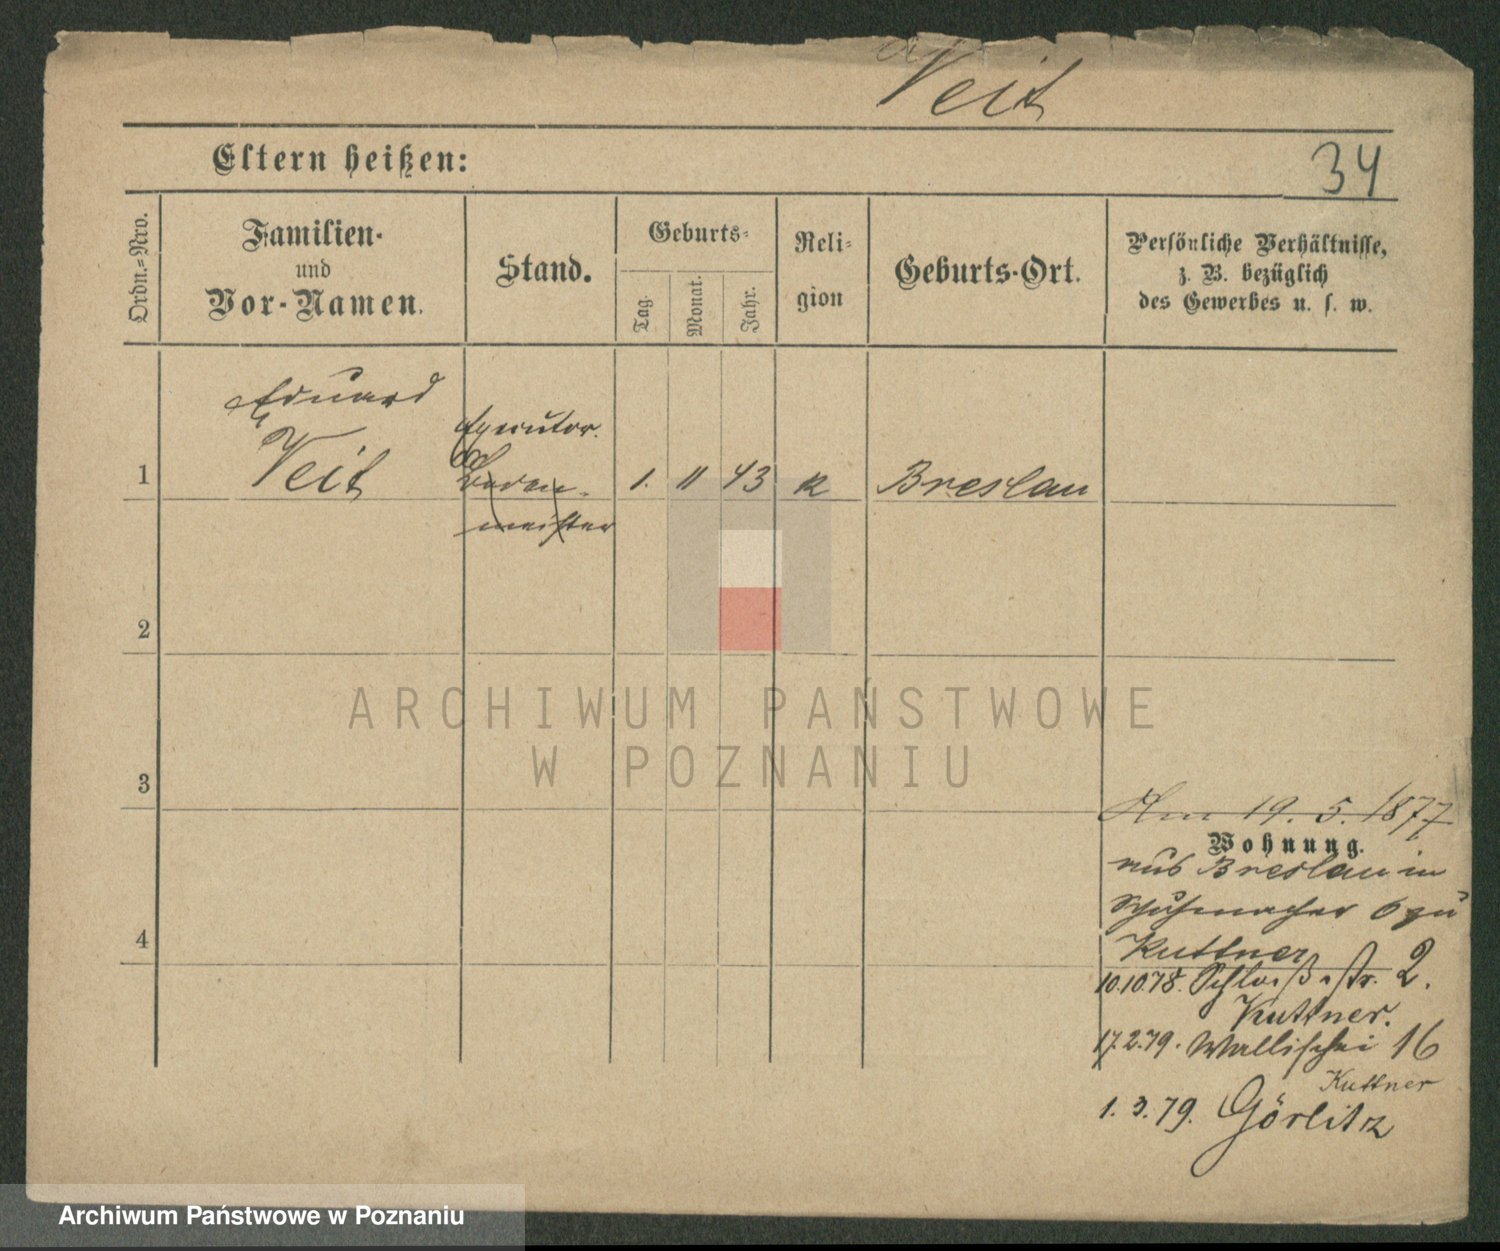 Veit
Eltern heißen:
34
Ordn.=Nro.
Familien-
und
Vor-Namen.
Stand.
Geburts-
Tag.
Monat.
Jahr.
Reli-
gion
Geburts-Ort.
Persönliche Verhältnisse,
z. B. bezüglich
des Gewerbes u. s. w.
Eduard
Veit
Executor.
meister
1
1. 11 43
Breslau
2
3
4
Am 19. 5. 1877
Wohnung.
aus Breslau in
Schuhmacher 6 zu
Kuttner
10.10.78. Schloßstr. 2.
Kuttner.
17.2.79. Wallischei 16
Kuttner
1. 3. 79. Görlitz
ARCHIWUM PAŃSTWOWE
W POZNANIU
Archiwum Państwowe w Poznaniu